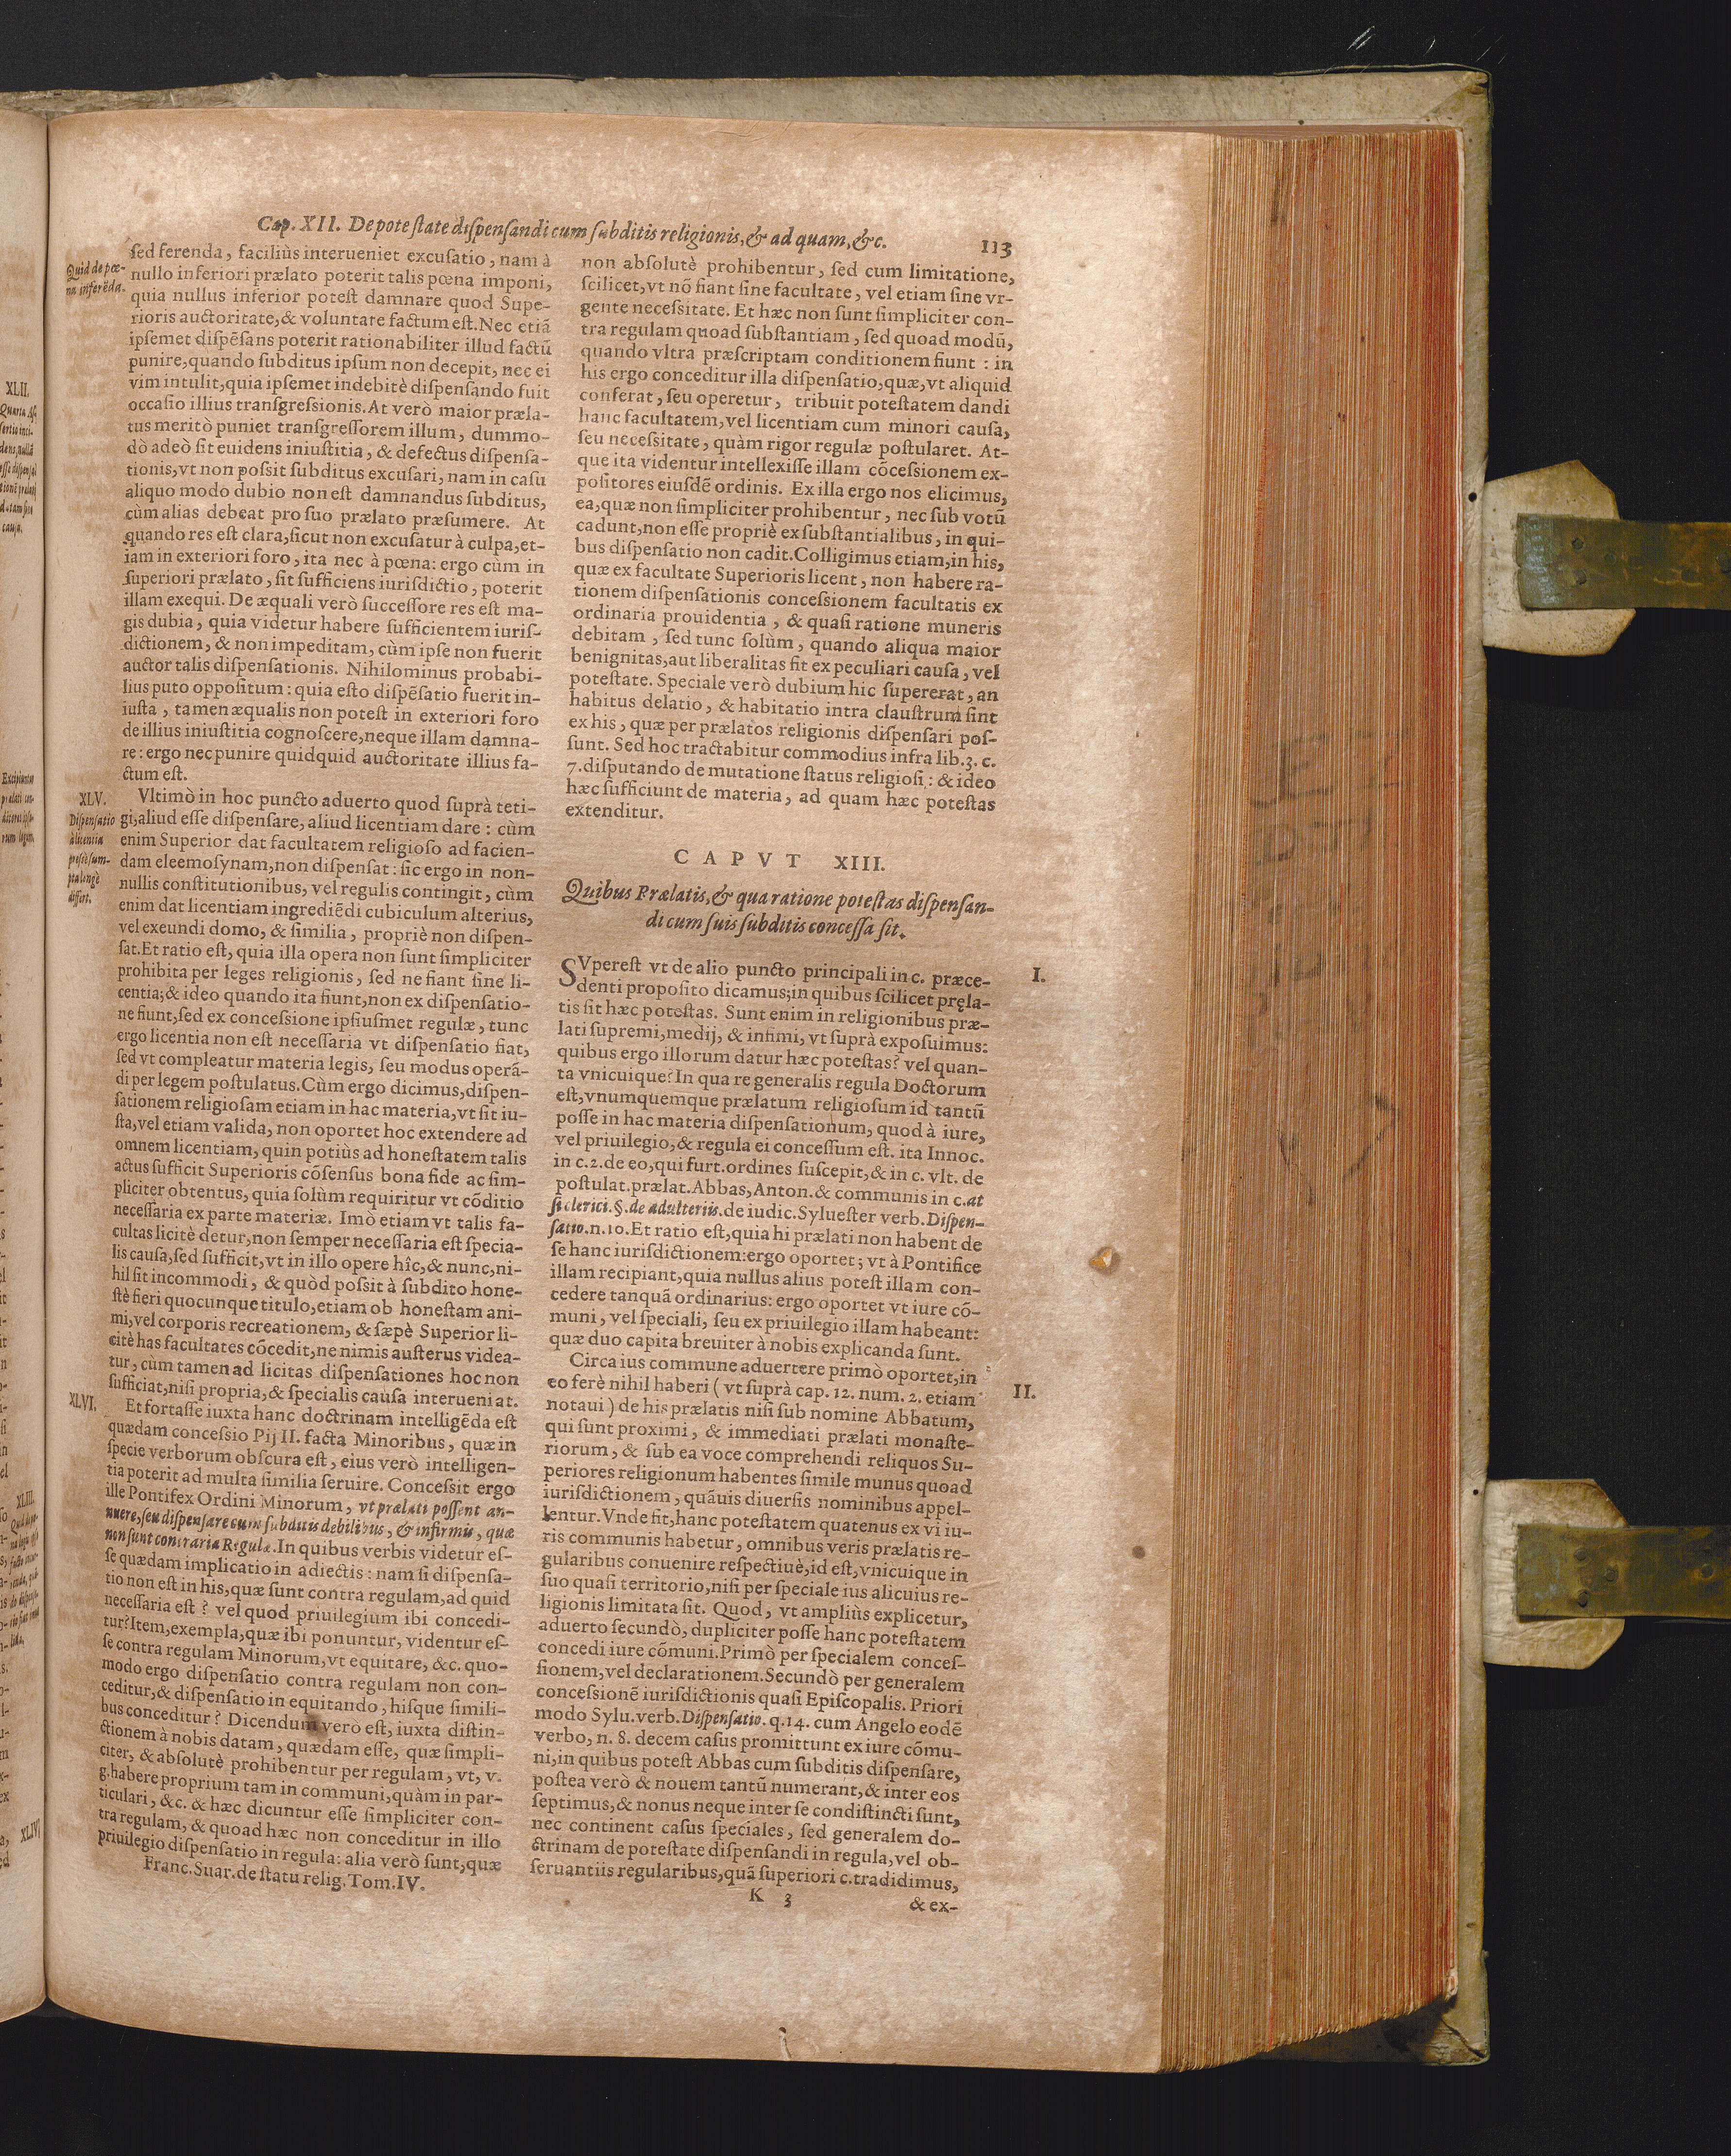 Cap. XII. De potestate dispensandi cum subditis religionis, & ad quam, &c. 113
Quid de pœ-
na inferẽda.
sed ferenda, faciliùs interueniet excusatio, nam à
nullo inferiori prælato poterit talis pœna imponi,
quia nullus inferior potest damnare quod Supe-
rioris auctoritate, & voluntate factum est. Nec etiã
ipsemet dispẽsans poterit rationabiliter illud factũ
punire, quando subditus ipsum non decepit, nec ei
vim intulit, quia ipsemet indebitè dispensando fuit
occasio illius transgressionis. At verò maior præla-
tus meritò puniet transgressorem illum, dummo-
dò adeò sit euidens iniustitia, & defectus dispensa-
tionis, vt non possit subditus excusari, nam in casu
aliquo modo dubio non est damnandus subditus,
cùm alias debeat pro suo prælato præsumere. At
quando res est clara, sicut non excusatur à culpa, et-
iam in exteriori foro, ita nec à pœna: ergo cùm in
superiori prælato, sit sufficiens iurisdictio, poterit
illam exequi. De æquali verò successore res est ma-
gis dubia, quia videtur habere sufficientem iuris-
dictionem, & non impeditam, cùm ipse non fuerit
auctor talis dispensationis. Nihilominus probabi-
lius puto oppositum: quia esto dispẽsatio fuerit in-
iusta, tamen æqualis non potest in exteriori foro
de illius iniustitia cognoscere, neque illam damna-
re: ergo nec punire quidquid auctoritate illius fa-
ctum est.
XLV.
Dispensatio
à licentia
pressè sum-
pta longè
differt.
Vltimò in hoc puncto aduerto quod suprà teti-
gi, aliud esse dispensare, aliud licentiam dare: cùm
enim Superior dat facultatem religioso ad facien-
dam eleemosynam, non dispensat: sic ergo in non-
nullis constitutionibus, vel regulis contingit, cùm
enim dat licentiam ingrediẽdi cubiculum alterius,
vel exeundi domo, & similia, propriè non dispen-
sat. Et ratio est, quia illa opera non sunt simpliciter
prohibita per leges religionis, sed ne fiant sine li-
centia; & ideo quando ita fiunt, non ex dispensatio-
ne fiunt, sed ex concessione ipsiusmet regulæ, tunc
ergo licentia non est necessaria vt dispensatio fiat,
sed vt compleatur materia legis, seu modus operã-
di per legem postulatus. Cùm ergo dicimus, dispen-
sationem religiosam etiam in hac materia, vt sit iu-
sta, vel etiam valida, non oportet hoc extendere ad
omnem licentiam, quin potiùs ad honestatem talis
actus sufficit Superioris cõsensus bona fide ac sim-
pliciter obtentus, quia solùm requiritur vt cõditio
necessaria ex parte materiæ. Imò etiam vt talis fa-
cultas licitè detur, non semper necessaria est specia-
lis causa, sed sufficit, vt in illo opere hîc, & nunc, ni-
hil sit incommodi, & quòd possit à subdito hone-
stè fieri quocunque titulo, etiam ob honestam ani-
mi, vel corporis recreationem, & sæpè Superior li-
citè has facultates cõcedit, ne nimis austerus videa-
tur, cùm tamen ad licitas dispensationes hoc non
sufficiat, nisi propria, & specialis causa interueniat.
XLVI.
Et fortasse iuxta hanc doctrinam intelligẽda est
quædam concessio Pij II. facta Minoribus, quæ in
specie verborum obscura est, eius verò intelligen-
tia poterit ad multa similia seruire. Concessit ergo
ille Pontifex Ordini Minorum, vt prælati possent an-
nuere, seu dispensare cum subditis debilibus, & infirmis, quæ
non sunt contraria Regulæ. In quibus verbis videtur es-
se quædam implicatio in adiectis: nam si dispensa-
tio non est in his, quæ sunt contra regulam, ad quid
necessaria est? vel quod priuilegium ibi concedi-
tur? Item, exempla, quæ ibi ponuntur, videntur es-
se contra regulam Minorum, vt equitare, &c. quo-
modo ergo dispensatio contra regulam non con-
ceditur, & dispensatio in equitando, hisque simili-
bus conceditur? Dicendum verò est, iuxta distin-
ctionem à nobis datam, quædam esse, quæ simpli-
citer, & absolutè prohibentur per regulam, vt, v.
g. habere proprium tam in communi, quàm in par-
ticulari, &c. & hæc dicuntur esse simpliciter con-
tra regulam, & quoad hæc non conceditur in illo
priuilegio dispensatio in regula: alia verò sunt, quæ
Franc. Suar. de statu relig. Tom. IV.
non absolutè prohibentur, sed cum limitatione,
scilicet, vt nõ fiant sine facultate, vel etiam sine vr-
gente necessitate. Et hæc non sunt simpliciter con-
tra regulam quoad substantiam, sed quoad modũ,
quando vltra præscriptam conditionem fiunt: in
his ergo conceditur illa dispensatio, quæ, vt aliquid
conferat, seu operetur, tribuit potestatem dandi
hanc facultatem, vel licentiam cum minori causa,
seu necessitate, quàm rigor regulæ postularet. At-
que ita videntur intellexisse illam cõcessionem ex-
positores eiusdẽ ordinis. Ex illa ergo nos elicimus,
ea, quæ non simpliciter prohibentur, nec sub votũ
cadunt, non esse propriè ex substantialibus, in qui-
bus dispensatio non cadit. Colligimus etiam, in his,
quæ ex facultate Superioris licent, non habere ra-
tionem dispensationis concessionem facultatis ex
ordinaria prouidentia, & quasi ratione muneris
debitam, sed tunc solùm, quando aliqua maior
benignitas, aut liberalitas fit ex peculiari causa, vel
potestate. Speciale verò dubium hic supererat, an
habitus delatio, & habitatio intra claustrum sint
ex his, quæ per prælatos religionis dispensari pos-
sunt. Sed hoc tractabitur commodius infra lib. 3. c.
7. disputando de mutatione status religiosi: & ideo
hæc sufficiunt de materia, ad quam hæc potestas
extenditur.
CAPVT XIII.
Quibus Prælatis, & qua ratione potestas dispensan-
di cum suis subditis concessa sit.
I.
SVperest vt de alio puncto principali in c. præce-
denti proposito dicamus; in quibus scilicet pręla-
tis sit hæc potestas. Sunt enim in religionibus præ-
lati supremi, medij, & infimi, vt suprà exposuimus:
quibus ergo illorum datur hæc potestas? vel quan-
ta vnicuique? In qua re generalis regula Doctorum
est, vnumquemque prælatum religiosum id tantũ
posse in hac materia dispensationum, quod à iure,
vel priuilegio, & regula ei concessum est. ita Innoc.
in c. 2. de eo, qui furt. ordines suscepit, & in c. vlt. de
postulat. prælat. Abbas, Anton. & communis in c. at
si clerici. §. de adulteriis. de iudic. Syluester verb. Dispen-
satio. n. 10. Et ratio est, quia hi prælati non habent de
se hanc iurisdictionem: ergo oportet; vt à Pontifice
illam recipiant, quia nullus alius potest illam con-
cedere tanquã ordinarius: ergo oportet vt iure cõ-
muni, vel speciali, seu ex priuilegio illam habeant:
quæ duo capita breuiter à nobis explicanda sunt.
II.
Circa ius commune aduertere primò oportet, in
eo ferè nihil haberi (vt suprà cap. 12. num. 2. etiam
notaui) de his prælatis nisi sub nomine Abbatum,
qui sunt proximi, & immediati prælati monaste-
riorum, & sub ea voce comprehendi reliquos Su-
periores religionum habentes simile munus quoad
iurisdictionem, quãuis diuersis nominibus appel-
lentur. Vnde fit, hanc potestatem quatenus ex vi iu-
ris communis habetur, omnibus veris prælatis re-
gularibus conuenire respectiuè, id est, vnicuique in
suo quasi territorio, nisi per speciale ius alicuius re-
ligionis limitata sit. Quod, vt ampliùs explicetur,
aduerto secundò, dupliciter posse hanc potestatem
concedi iure cõmuni. Primò per specialem conces-
sionem, vel declarationem. Secundò per generalem
concessionẽ iurisdictionis quasi Episcopalis. Priori
modo Sylu. verb. Dispensatio. q. 14. cum Angelo eodẽ
verbo, n. 8. decem casus promittunt ex iure cõmu-
ni, in quibus potest Abbas cum subditis dispensare,
postea verò & nouem tantũ numerant, & inter eos
septimus, & nonus neque inter se condistincti sunt,
nec continent casus speciales, sed generalem do-
ctrinam de potestate dispensandi in regula, vel ob-
seruantiis regularibus, quã superiori c. tradidimus,
K 3 & ex-